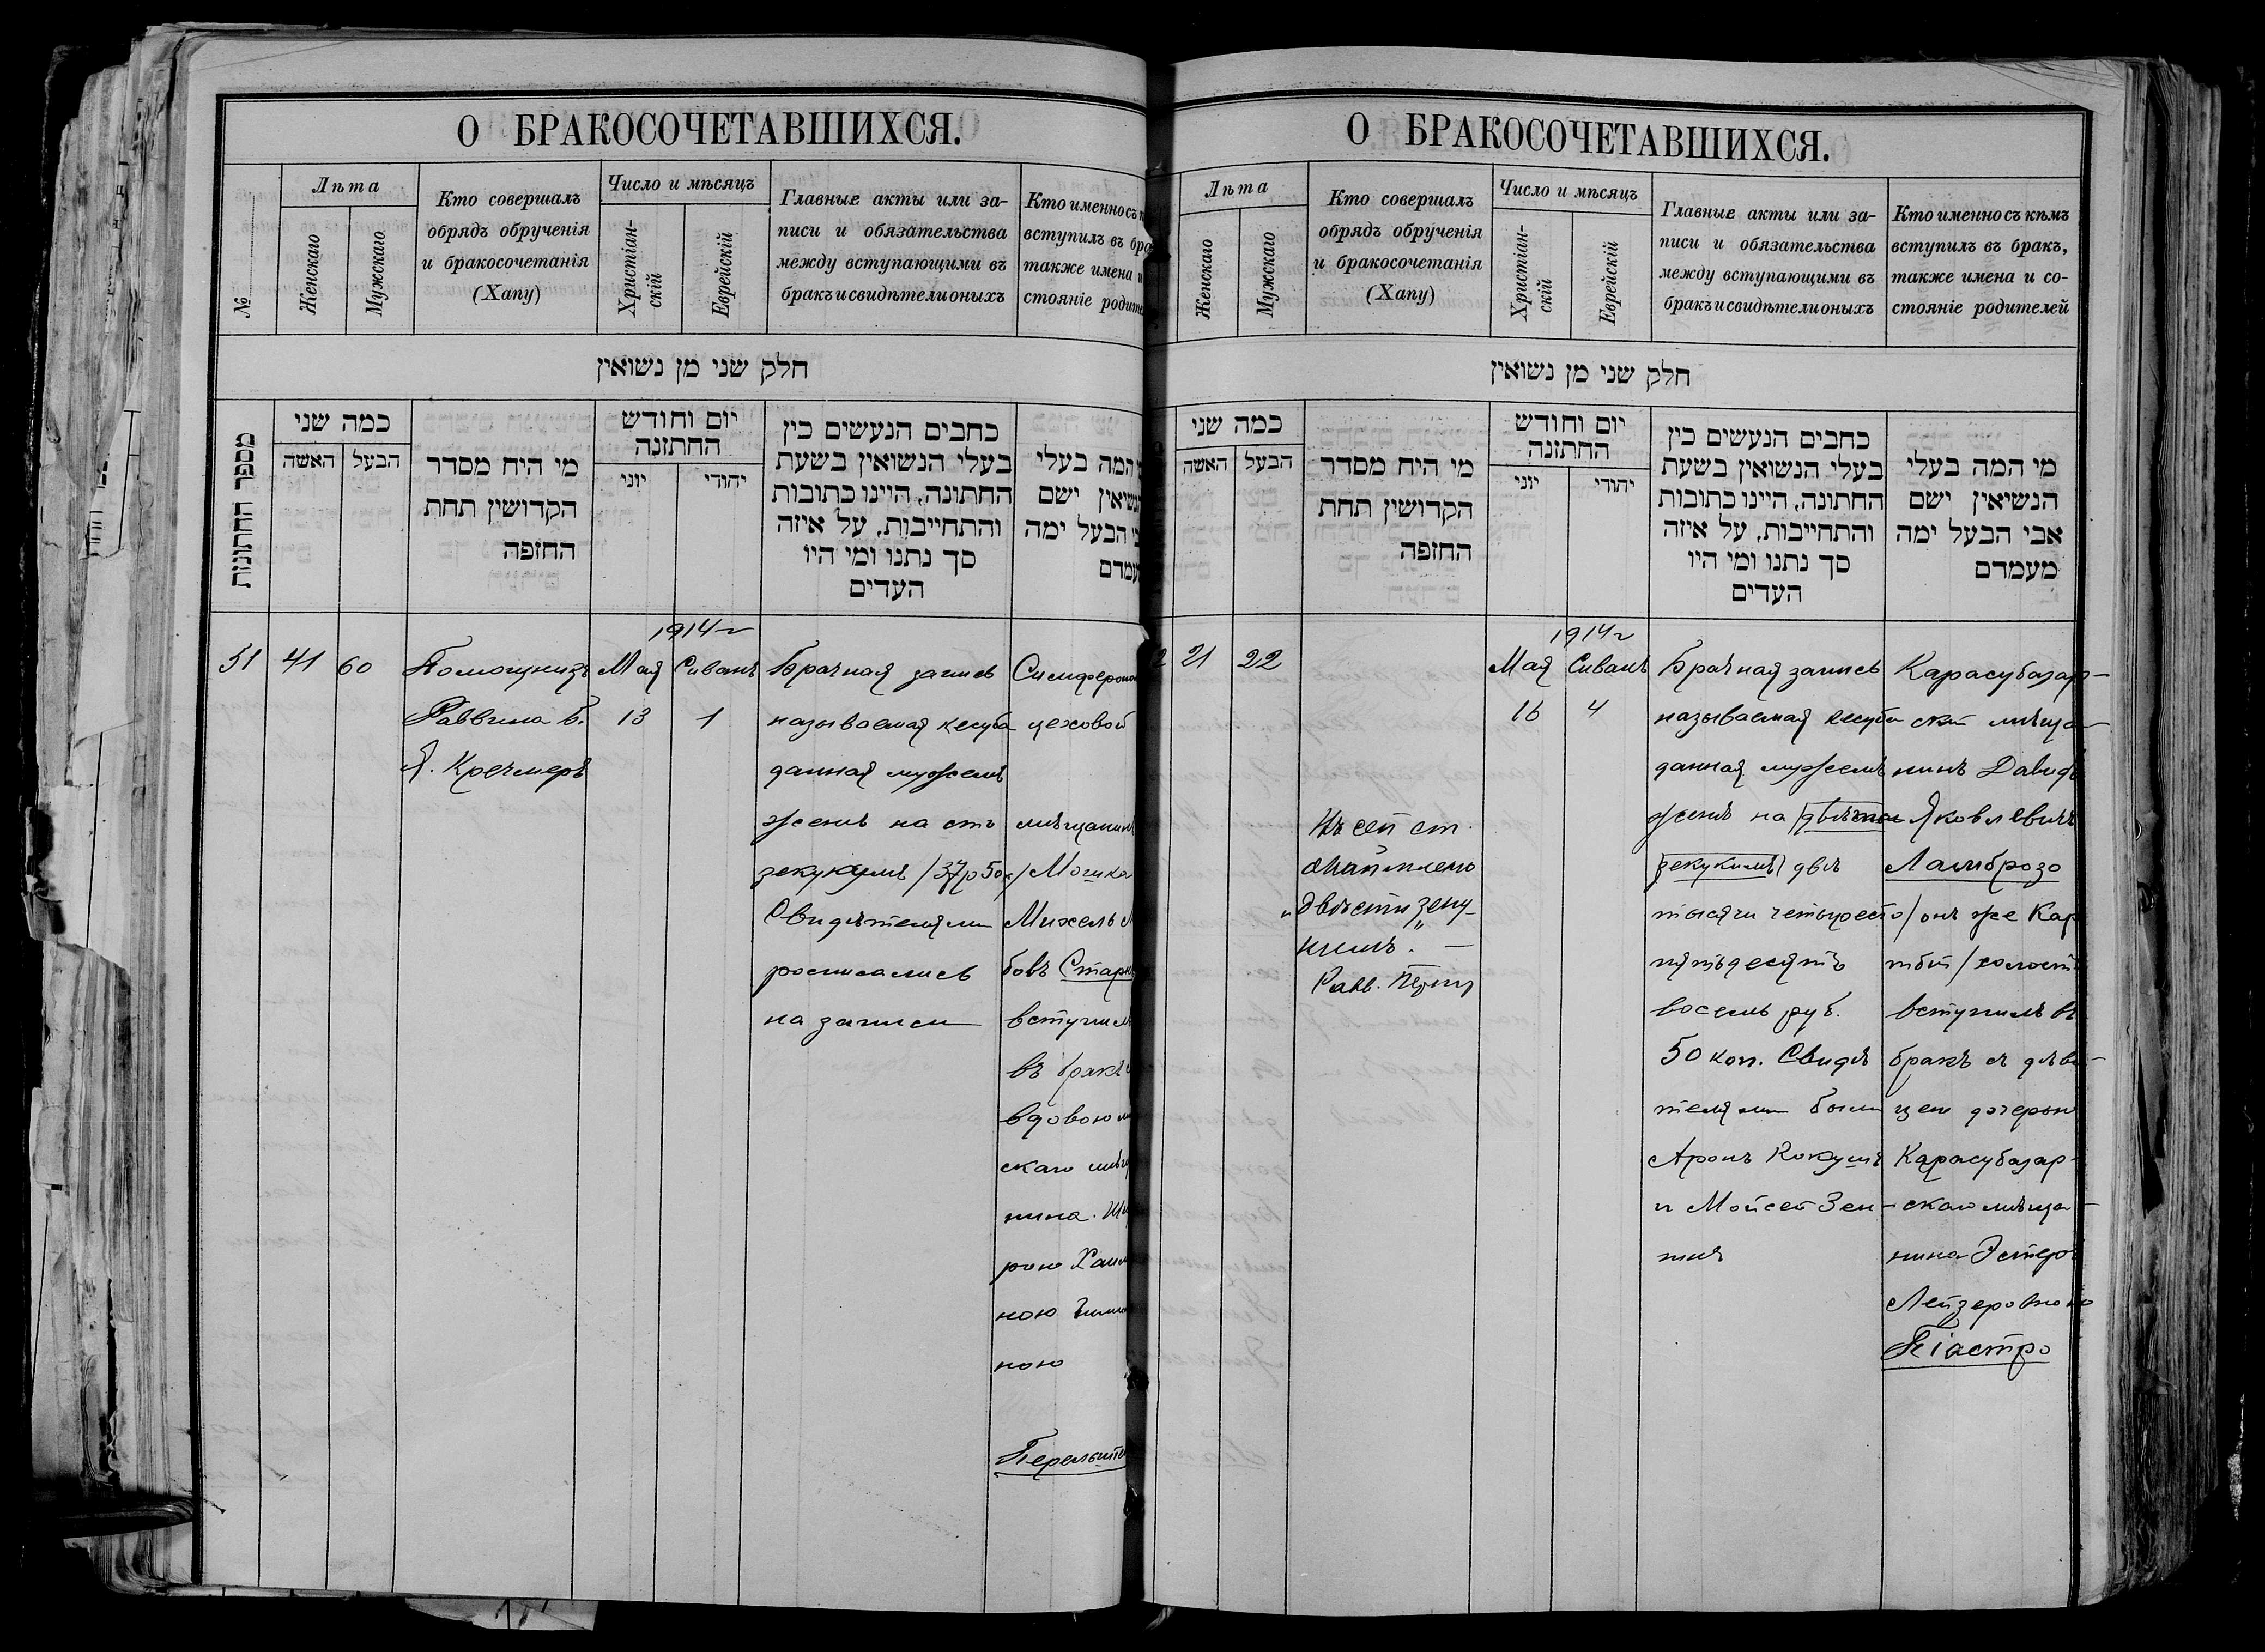 О БРАКОСОЧЕТАВШИХСЯ.
№
Лѣта
Женскаго
Мужскаго
Кто совершалъ
обрядъ обрученія
и бракосочетанія
(Хапу)
Число и мѣсяцъ
Христіан-
скій
Еврейскій
Главные акты или за-
писи и обязательства
между вступающими въ
бракъ и свидѣтели оныхъ
Кто именно съ к
вступилъ въ бра
также имена и
стояніе родите
חלק שני מן נשואין
מספר החתונות
כמה שני
האשה
הבעל
מי היח מסדר
הקדושין תחת
החופה
יום וחודש
החתונה
יוני
יהודי
כחבים הנעשים כין
בעלי הנשואין בשעת
החתונה, היינו כתובות
והתחייבות, על איזה
סך נתנו ומי היו
העדים
המה בעלי
נשואין ישם
הבעל ימה
עמדם
51
41
60
Помощникъ
Раввина Б.
Я. Кречмеръ
1914 г
Мая
13
Сиванъ
1
Брачная запись
называемая кесуба
данная мужемъ
женѣ на сто
зекукимъ /37р50к/
Свидѣтелями
росписались
на записи
Симферопол
цеховой
мѣщанинъ
Мошка
Михель
бовъ Старк
вступилъ
въ бракъ
вдовою
скаго мѣщ
нина
рою Хаим
ною
ною
Перельште
О БРАКОСОЧЕТАВШИХСЯ.
Лѣта
Женскаго
Мужскаго
Кто совершалъ
обрядъ обрученія
и бракосочетанія
(Хапу)
Число и мѣсяцъ
Христіан-
скій
Еврейскій
Главные акты или за-
писи и обязательства
между вступающими въ
бракъ и свидѣтели оныхъ
Кто именно съ кѣмъ
вступилъ въ бракъ,
также имена и со-
стояніе родителей
חלק שני מן נשואין
כמה שני
האשה
הבעל
מי היח מסדר
הקדושין תחת
החופה
יום וחודש
החתונה
יוני
יהודי
כחבים הנעשים כין
בעלי הנשואין בשעת
החתונה, היינו כתובות
והתחייבות, על איזה
סך נתנו ומי היו
העדים
מי המה בעלי
הנשיאין ישם
אבי הבעל ימה
מעמדם
2
21
22
Въ сей ст.
"двѣсти зеку-
кимъ". —
Равв.
1914 г
Мая
16
Сиванъ
4
Брачная запись
называемая кесуба
данная мужемъ
женѣ на двѣсти
зекукимъ двѣ
тысячи четыреста
пятьдесятъ
восемь руб.
50 коп. Свидѣ
телями были
Аронъ Кокушъ
и Мойсей Зен-
Карасубазар-
скій мѣща-
нинъ Давидъ
Яковлевичъ
Ламброзо
/онъ же Кар
холостъ
вступилъ въ
бракъ съ дѣви-
цею дочерью
Карасубазар-
скаго мѣща-
нина Эстеръ
Лейзеровною
Піастро